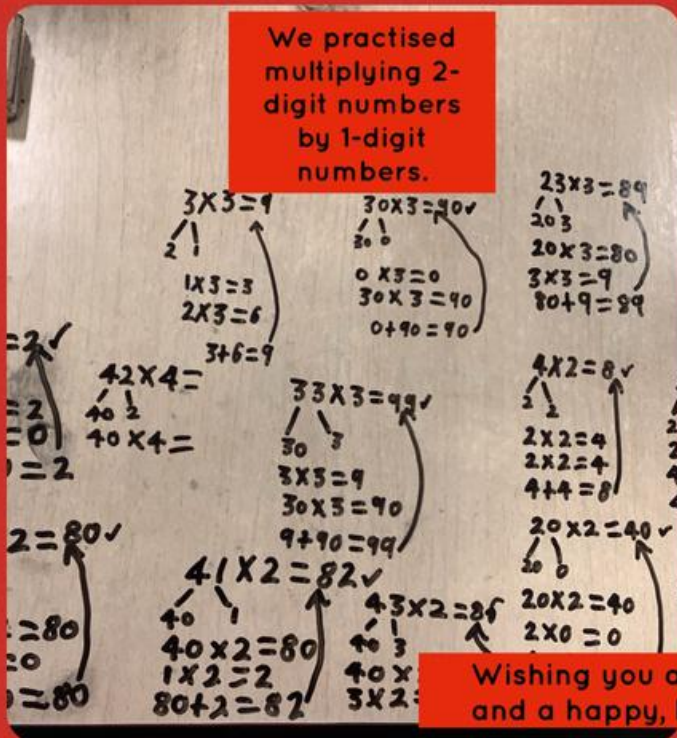 We practised
multiplying 2-
digit numbers
by 1-digit
numbers.
3×3=9
2 1
1×3=3
2×3=6
3+6=9
30×3=90✓
30 0
0×3=0
30×3=90
0+90=90
23×3=89
20 3
20×3=80
3×3=9
80+9=89
=2✓
=2
=0
=2
42×4=
40 2
40×4=
33×3=99✓
30 3
3×3=9
30×3=90
9+90=99
4×2=8✓
2 2
2×2=4
2×2=4
4+4=8
2=80✓
=80
=0
=80
41×2=82✓
40 1
40×2=80
1×2=2
80+2=82
43×2=86
40 3
40×
3×2=
20×2=40✓
20 0
20×2=40
2×0=0
Wishing you a
and a happy,